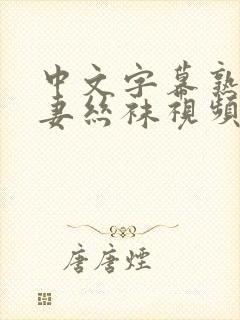 中文字幕熟
妻絲袜視頻
唐唐煙